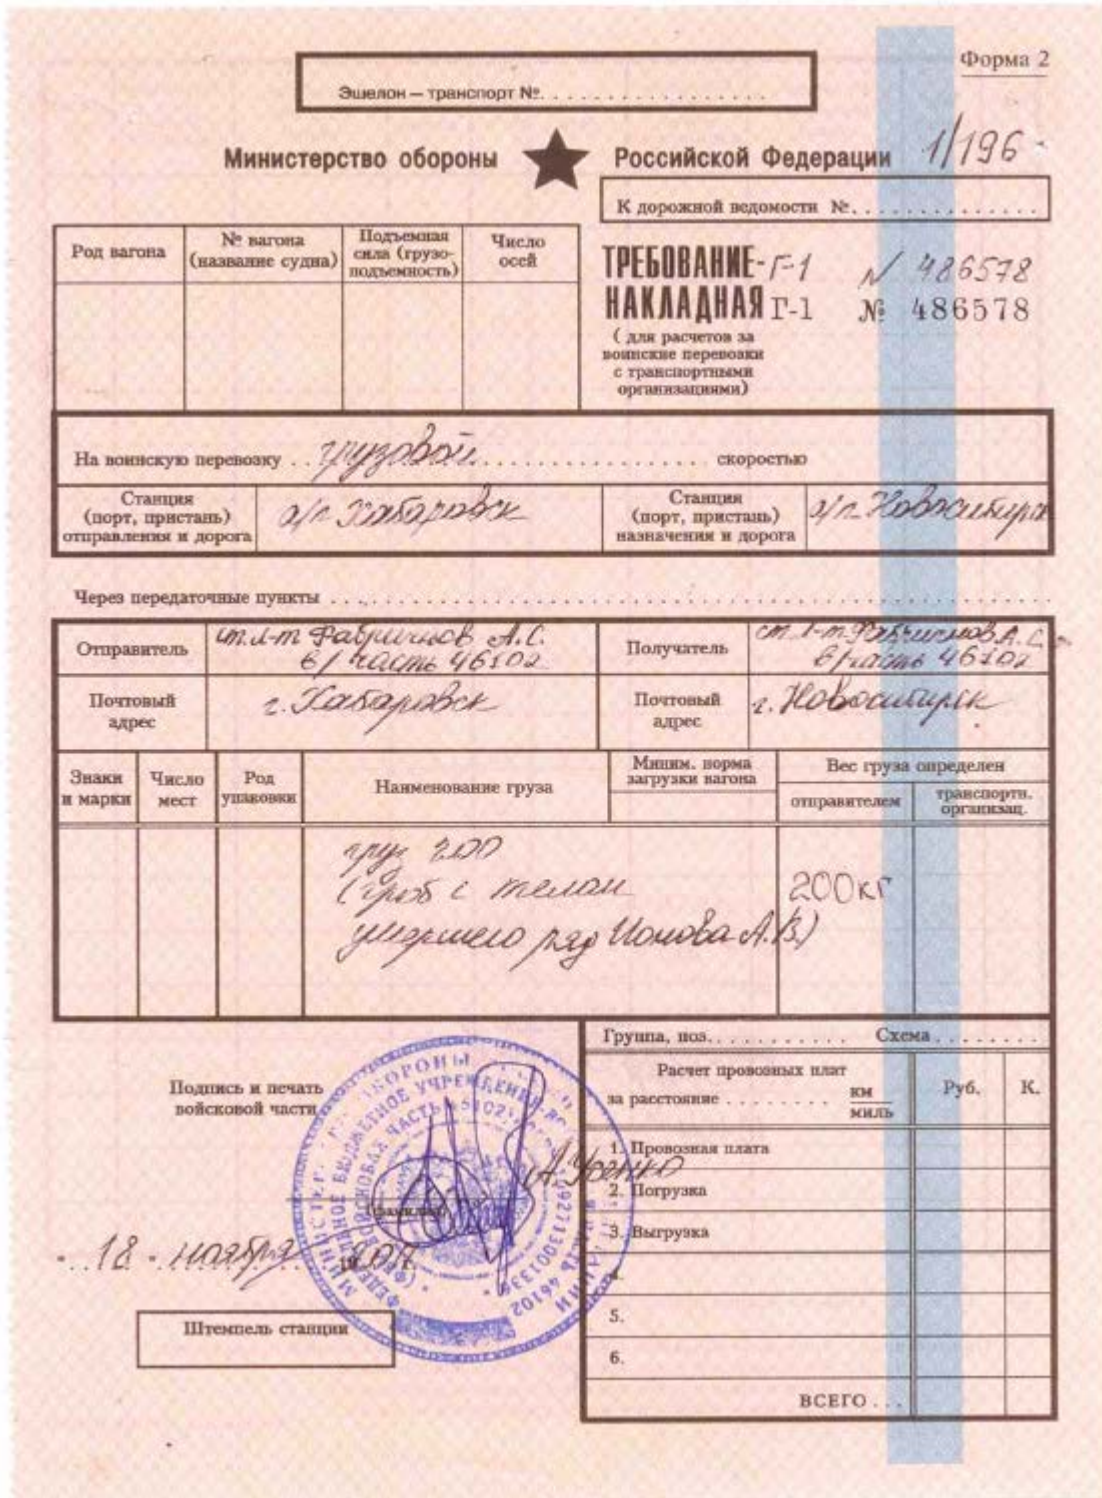 Форма 2
Эшелон — транспорт №
Министерство обороны Российской Федерации 1/196
К дорожной ведомости №
Род вагона
№ вагона (название судна)
Подъемная сила (грузо-подъемность)
Число осей
ТРЕБОВАНИЕ- Г-1 № 486578
НАКЛАДНАЯ Г-1 № 486578
( для расчетов за
воинские перевозки
с транспортными
организациями)
На воинскую перевозку грузовой скоростью
Станция
(порт, пристань)
отправления и дорога
а/п Хабаровск
Станция
(порт, пристань)
назначения и дорога
а/п Новосибирск
Через передаточные пункты
Отправитель
ст. л-т Фабричнов А.С.
в/часть 46102
Получатель
ст. л-т Фабричнов А.С.
в/часть 46102
Почтовый
адрес
г. Хабаровск
Почтовый
адрес
г. Новосибирск
Знаки
и марки
Число
мест
Род
упаковки
Наименование груза
Миним. норма
загрузки вагона
Вес груза определен
отправителем
транспортн.
организац.
груз 200
(гроб с телом
умершего ряд Ионова А.В.)
200кг
Группа, поз. Схема
Подпись и печать
войсковой части
Расчет провозных плат
за расстояние км
миль
Руб. К.
1. Провозная плата
2. Погрузка
3. Выгрузка
4.
5.
6.
ВСЕГО
(фамилия)
18 ноября
Штемпель станции
ВОЙСКОВАЯ ЧАСТЬ 46102